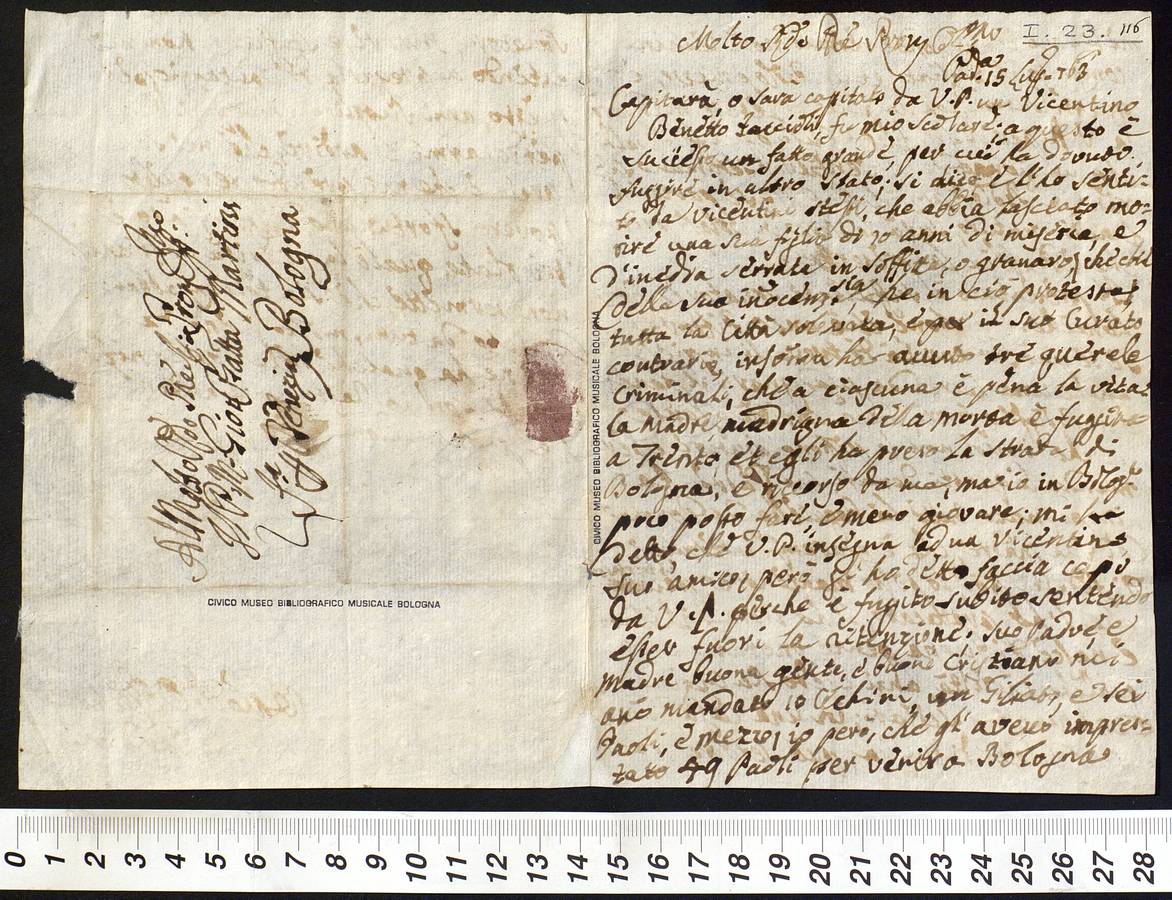 I. 23. 116
Molto Rdo Pre Pron
Pad.a 15 Lug.
Capitarà, o sarà capitato da V.P. un Vicentino
Benetto fu mio scolare; a questo è
un fatto grande, per cui ha dovuto
fuggire in altro stato; si dice e l'ho senti-
to da Vicentini stessi, che abbia lasciato mo-
rire una sua figlia di 10 anni di miseria, e
d'inedia serrata in soffita, o granaro;
della sua inocenza in ciò protesta;
tutta la Città e per il suo Curato
contrario, insoma ha auuto tre querele
Criminali, che a ciascuna è pena la vita
la Madre, madrigna della morta è fugita
a Trento, et egli ha preso la strada di
Bologna, è ricorso da me, ma io in Bolog.
poco posso fare, e meno giovare; mi ha
detto, che V.P. insegna ad un Vicentino
suo amico, però gl'ho detto faccia capo
da V.P. perche è fuggito subito sentendo
esser fuori la ritenzione. Suo Padre, e
Madre buona gente, e buoni Cristiani
ano mandato 10 Cechini, un Giliato, e sei
Paoli, e mezzo; io però, che gl'aveuo impres-
tato 49 Paoli per venire a Bologna
Al Molto Rdo Pre
Pre M. Gio: Batta Martini
Bologna
CIVICO MUSEO BIBLIOGRAFICO MUSICALE BOLOGNA
CIVICO MUSEO BIBLIOGRAFICO MUSICALE BOLOGNA
0 1 2 3 4 5 6 7 8 9 10 11 12 13 14 15 16 17 18 19 20 21 22 23 24 25 26 27 28